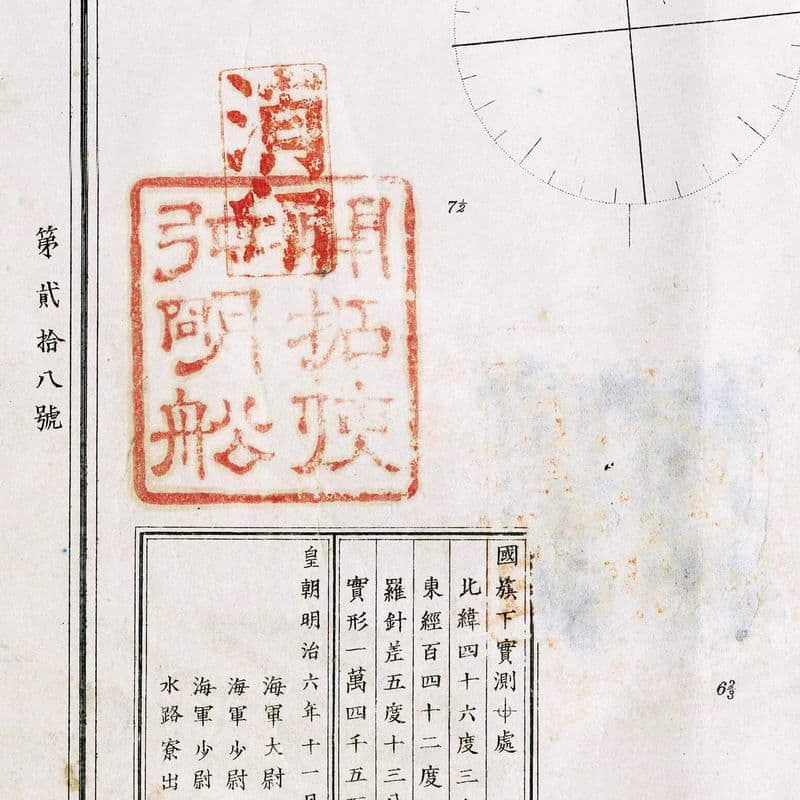 消印
開拓使
弘明船
7½
6⅔
國旗下實測中處
北緯四十六度三
東經百四十二度
羅針差五度十三
實形一萬四千五
皇朝明治六年十一月
海軍大尉
海軍少尉
海軍少尉
水路寮出
第貳拾八號